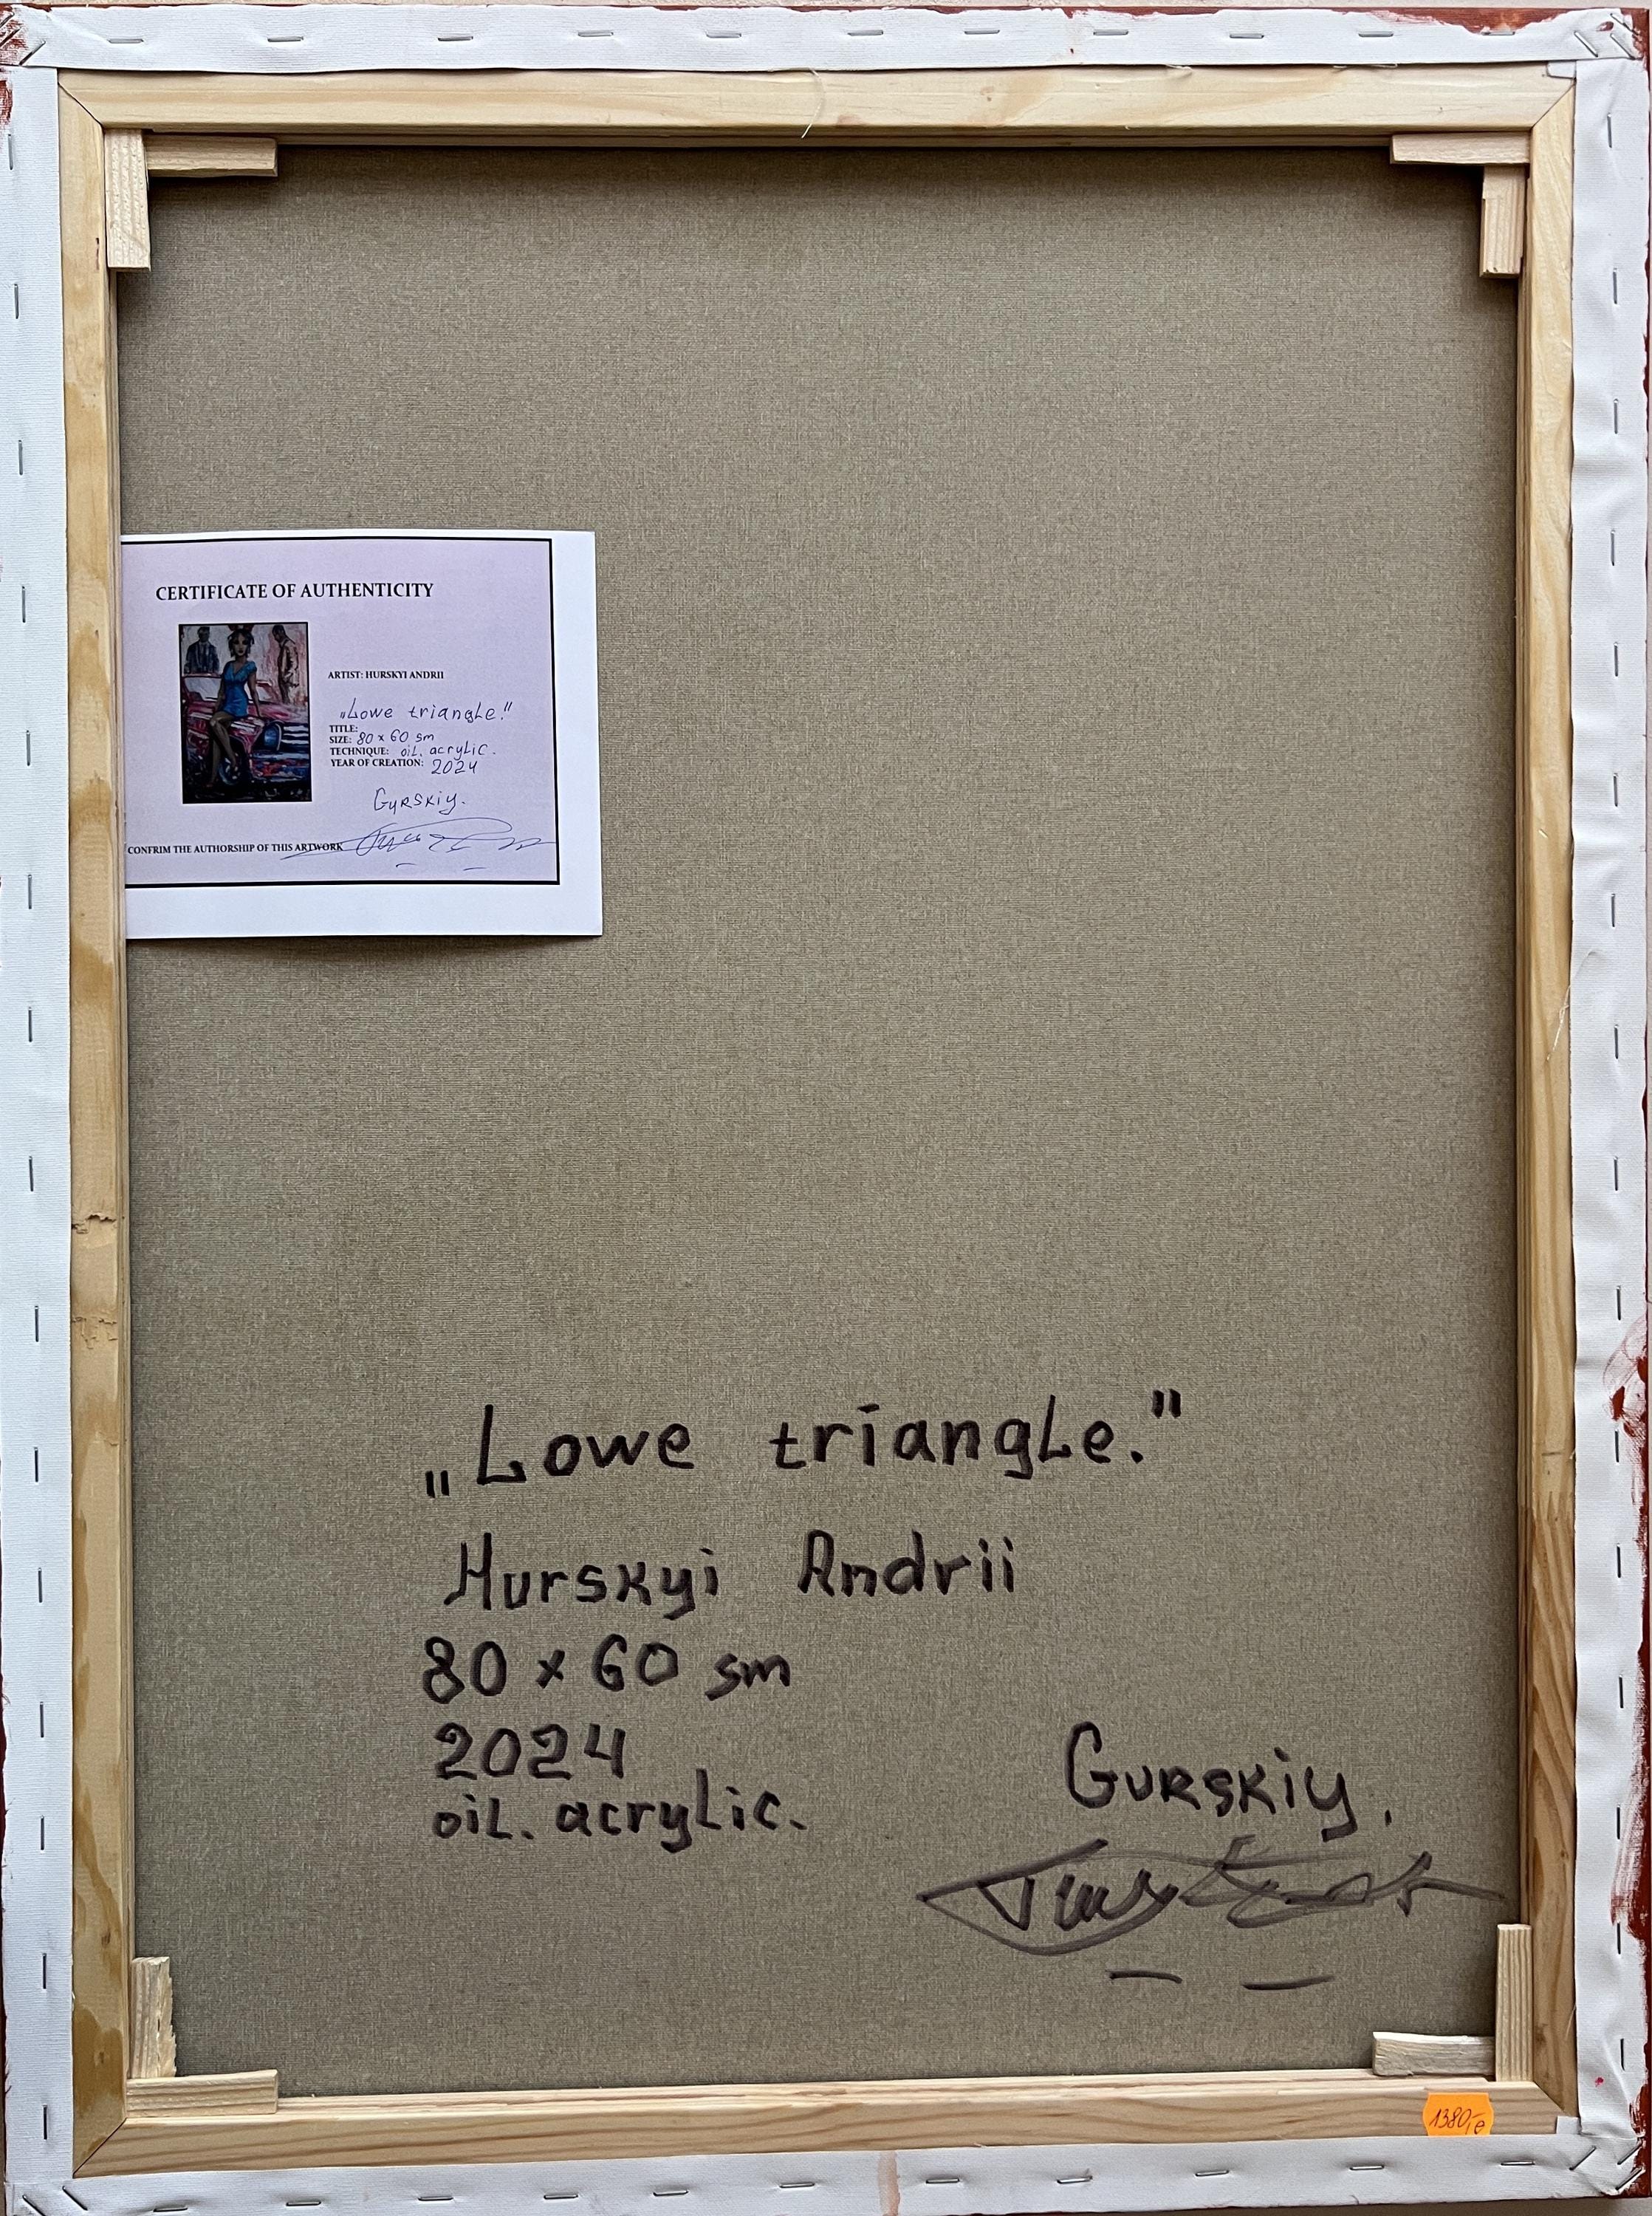 CERTIFICATE OF AUTHENTICITY
ARTIST: HURSKYI ANDRII
„Lowe triangle."
TITLE:
SIZE: 80 x 60 sm
TECHNIQUE: oil. acrylic.
YEAR OF CREATION: 2024
Gurskiy.
CONFRIM THE AUTHORSHIP OF THIS ARTWORK
„Lowe triangle."
Hurskyi Andrii
80 x 60 sm
2024
oil. acrylic.
Gurskiy.
1380,-e